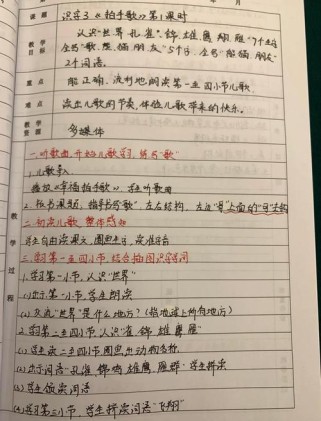 课题 识字3《拍手歌》第1课时
教学目标 认识"世、界、孔、雀、锦、雄、鹰、翔、雁"
会写"歌、丛、猫、朋、友"5个字,会写"熊猫、朋友"
2个词语。
重点 能正确、流利地朗读第一至四小节儿歌
难点 读出儿歌的节奏,体验儿歌带来的快乐。
教学资源 多媒体
教学过程
一、听歌曲,开始儿歌学习,练写"歌"
1.儿歌导入
播放《幸福拍手歌》,学生听歌曲
2.板书课题,指导书写"歌",左右结构,
二、初读儿歌,整体感知
学生自由读课文,圈画生字,读准字音
三、学习第一至四小节,结合插图识字学词
1.学习第一小节,认识"世界"
(1)出示第一小节,学生朗读
(2)交流"世界"是什么地方?(指地球上所有地方)
2.学习第二至四小节,认识"雀、锦、雄、鹰、雁"
(1)学生读二至四小节,圈画出动物名称
(2)出示词语"孔雀、锦鸡、雄鹰、雁群",学生拼读
(3)学生领读词语
(4)学习第三小节,学生拼读词语"飞翔"